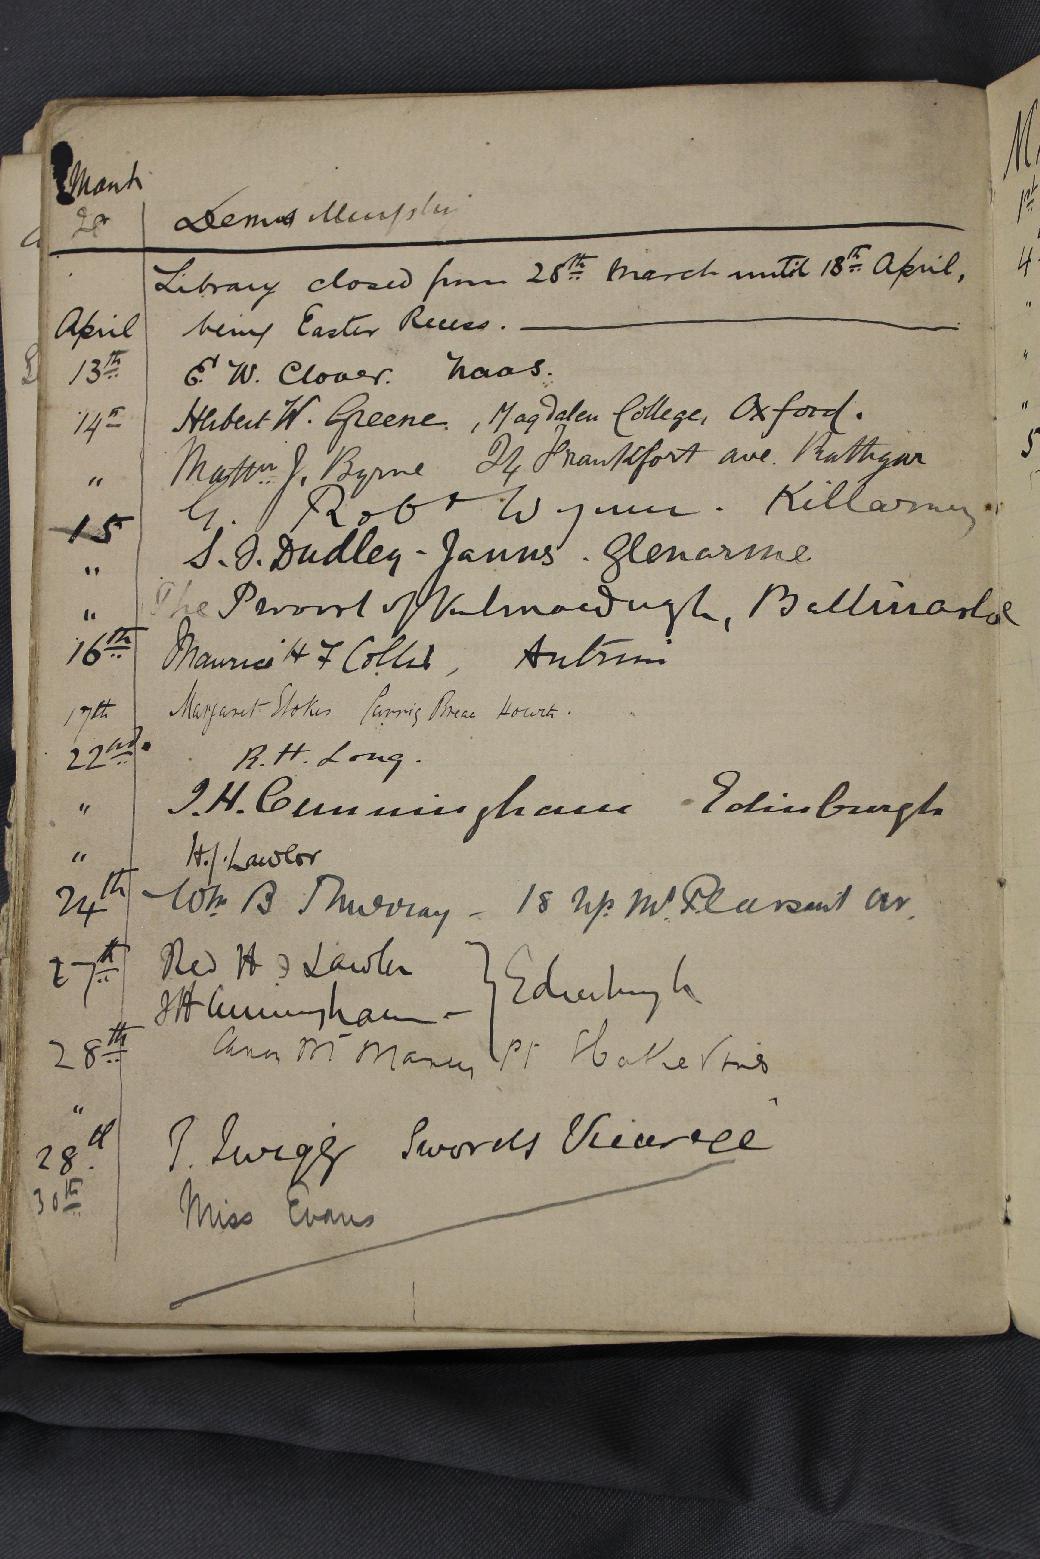 March
28 Denis Murphy
Library closed from 28th March until 13th April,
April being Easter Recess.
13th E. W. Clover. Naas.
14th Herbert W. Greene, Magdalen College, Oxford.
" Matthew J. Byrne 24 Frankfort ave. Rathgar
15 G. Robt Wynne. Killarney
" S. J. Dudley-Janns. Glenarme
" The Provost of Kilmacduagh, Ballinasloe
16th Maurice H F Collis, Antrim
17th Margaret Stokes Carrig Breac Howth.
22nd. R. H. Long.
" J. H. Cunningham Edinburgh
" H. J. Lawlor
24th Wm B Murray - 18 Up. Mt Pleasant av.
27th Rev H J Lawlor
JH Cunningham - } Edinburgh
28th
"
28th T. Twigg Swords Vicarage
30th Miss Evans